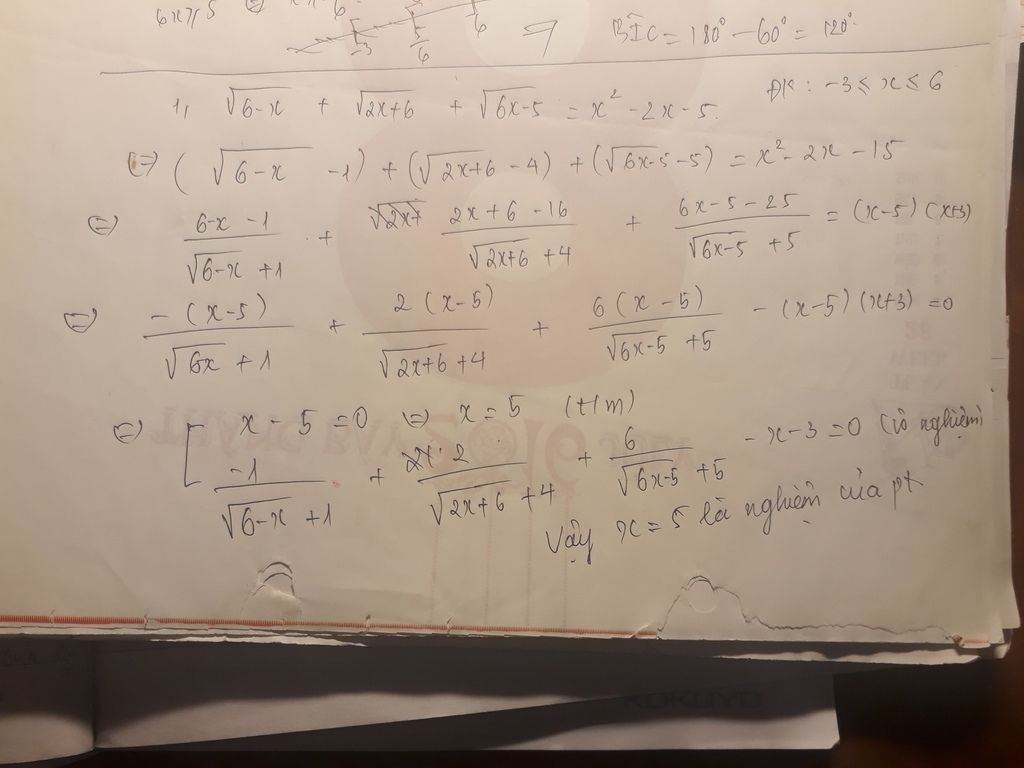 6x ≥ 5
-3 5/6 6
BIC = 180° - 60° = 120°
1, √(6-x) + √(2x+6) + √(6x-5) = x² - 2x - 5. ĐK: -3 ≤ x ≤ 6
(=) (√(6-x) - 1) + (√(2x+6) - 4) + (√(6x-5) - 5) = x² - 2x - 15
(=) (6-x-1)/(√(6-x) + 1) + (2x+6-16)/(√(2x+6) + 4) + (6x-5-25)/(√(6x-5) + 5) = (x-5)(x+3)
(=) -(x-5)/(√(6x) + 1) + 2(x-5)/(√(2x+6) + 4) + 6(x-5)/(√(6x-5) + 5) - (x-5)(x+3) = 0
(=) [ x - 5 = 0 (=) x = 5 (t/m)
-1/(√(6-x) + 1) + 2/(√(2x+6) + 4) + 6/(√(6x-5) + 5) - x - 3 = 0 (vô nghiệm)
Vậy x = 5 là nghiệm của pt.
KOKUYO